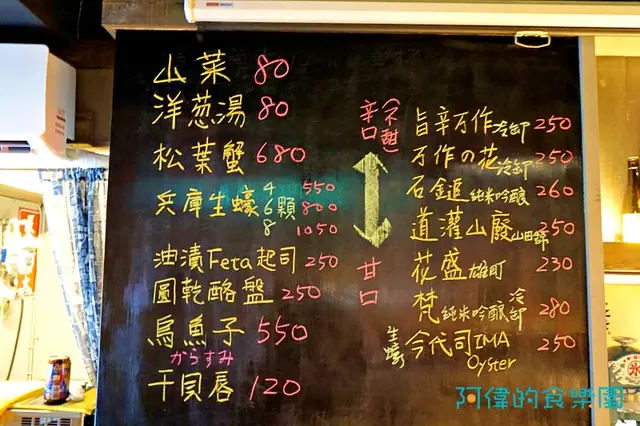 山菜 80
洋葱湯 80
松葉蟹 680
兵庫生蠔 4 550
6顆 800
8 1050
油漬Feta起司 250
圓乾酪盤 250
烏魚子 550
からすみ
干貝唇 120
辛口(不甜)
甘口
旨辛万作冷卸 250
万作の花冷卸 250
石鎚純米吟釀 260
道灌山廢山田錦 250
花盛雄町 230
梵純米吟釀冷卸 280
生蠔 今代司IMA 250
Oyster
阿偉的食樂園